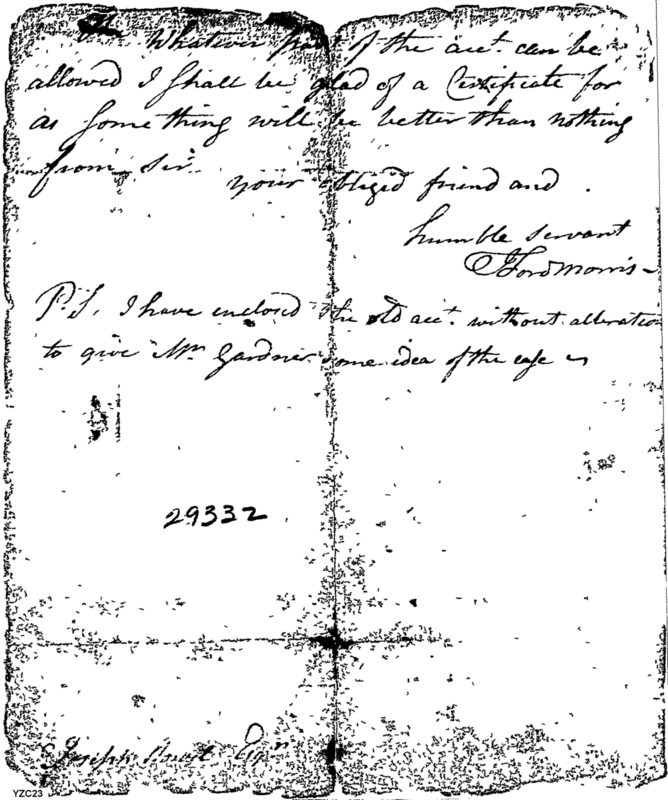 Whatever part of the acct. can be
allowed I shall be glad of a Certificate for
as something will be better than nothing
from, Sir
your obliged friend and
humble servant
P.S. I have enclosed the old acct. without alteration
to give Mr. Gardner some idea of the case
29332
Joseph Esqr
YZC23